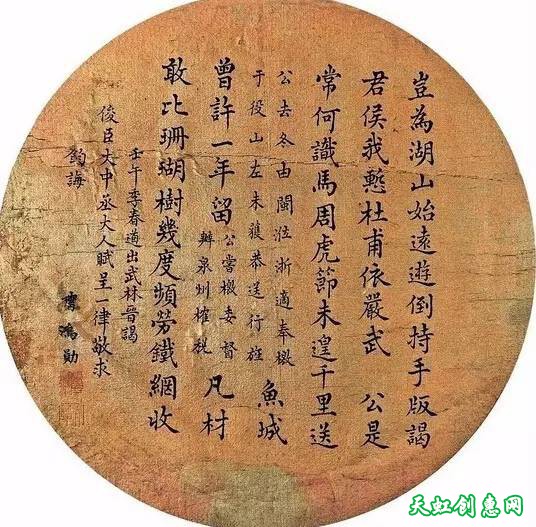 豈為湖山始遠遊倒持手版謁
君侯我慙杜甫依嚴武 公是
常何識馬周虎節未遑千里送
公去冬由閩涖浙適奉檄
于役山左未獲恭送行旌
魚城
曾許一年留
公嘗檄委督
辦泉州榷稅
凡材
敢比珊瑚樹幾度頻勞鐵網收
壬午季春道出武林晉謁
俊臣大中丞大人賦呈一律敬求
鈞誨
曹鴻勛
天虹创意网